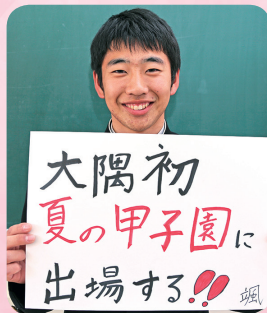 大隅初
夏の甲子園に
出場する!!
颯